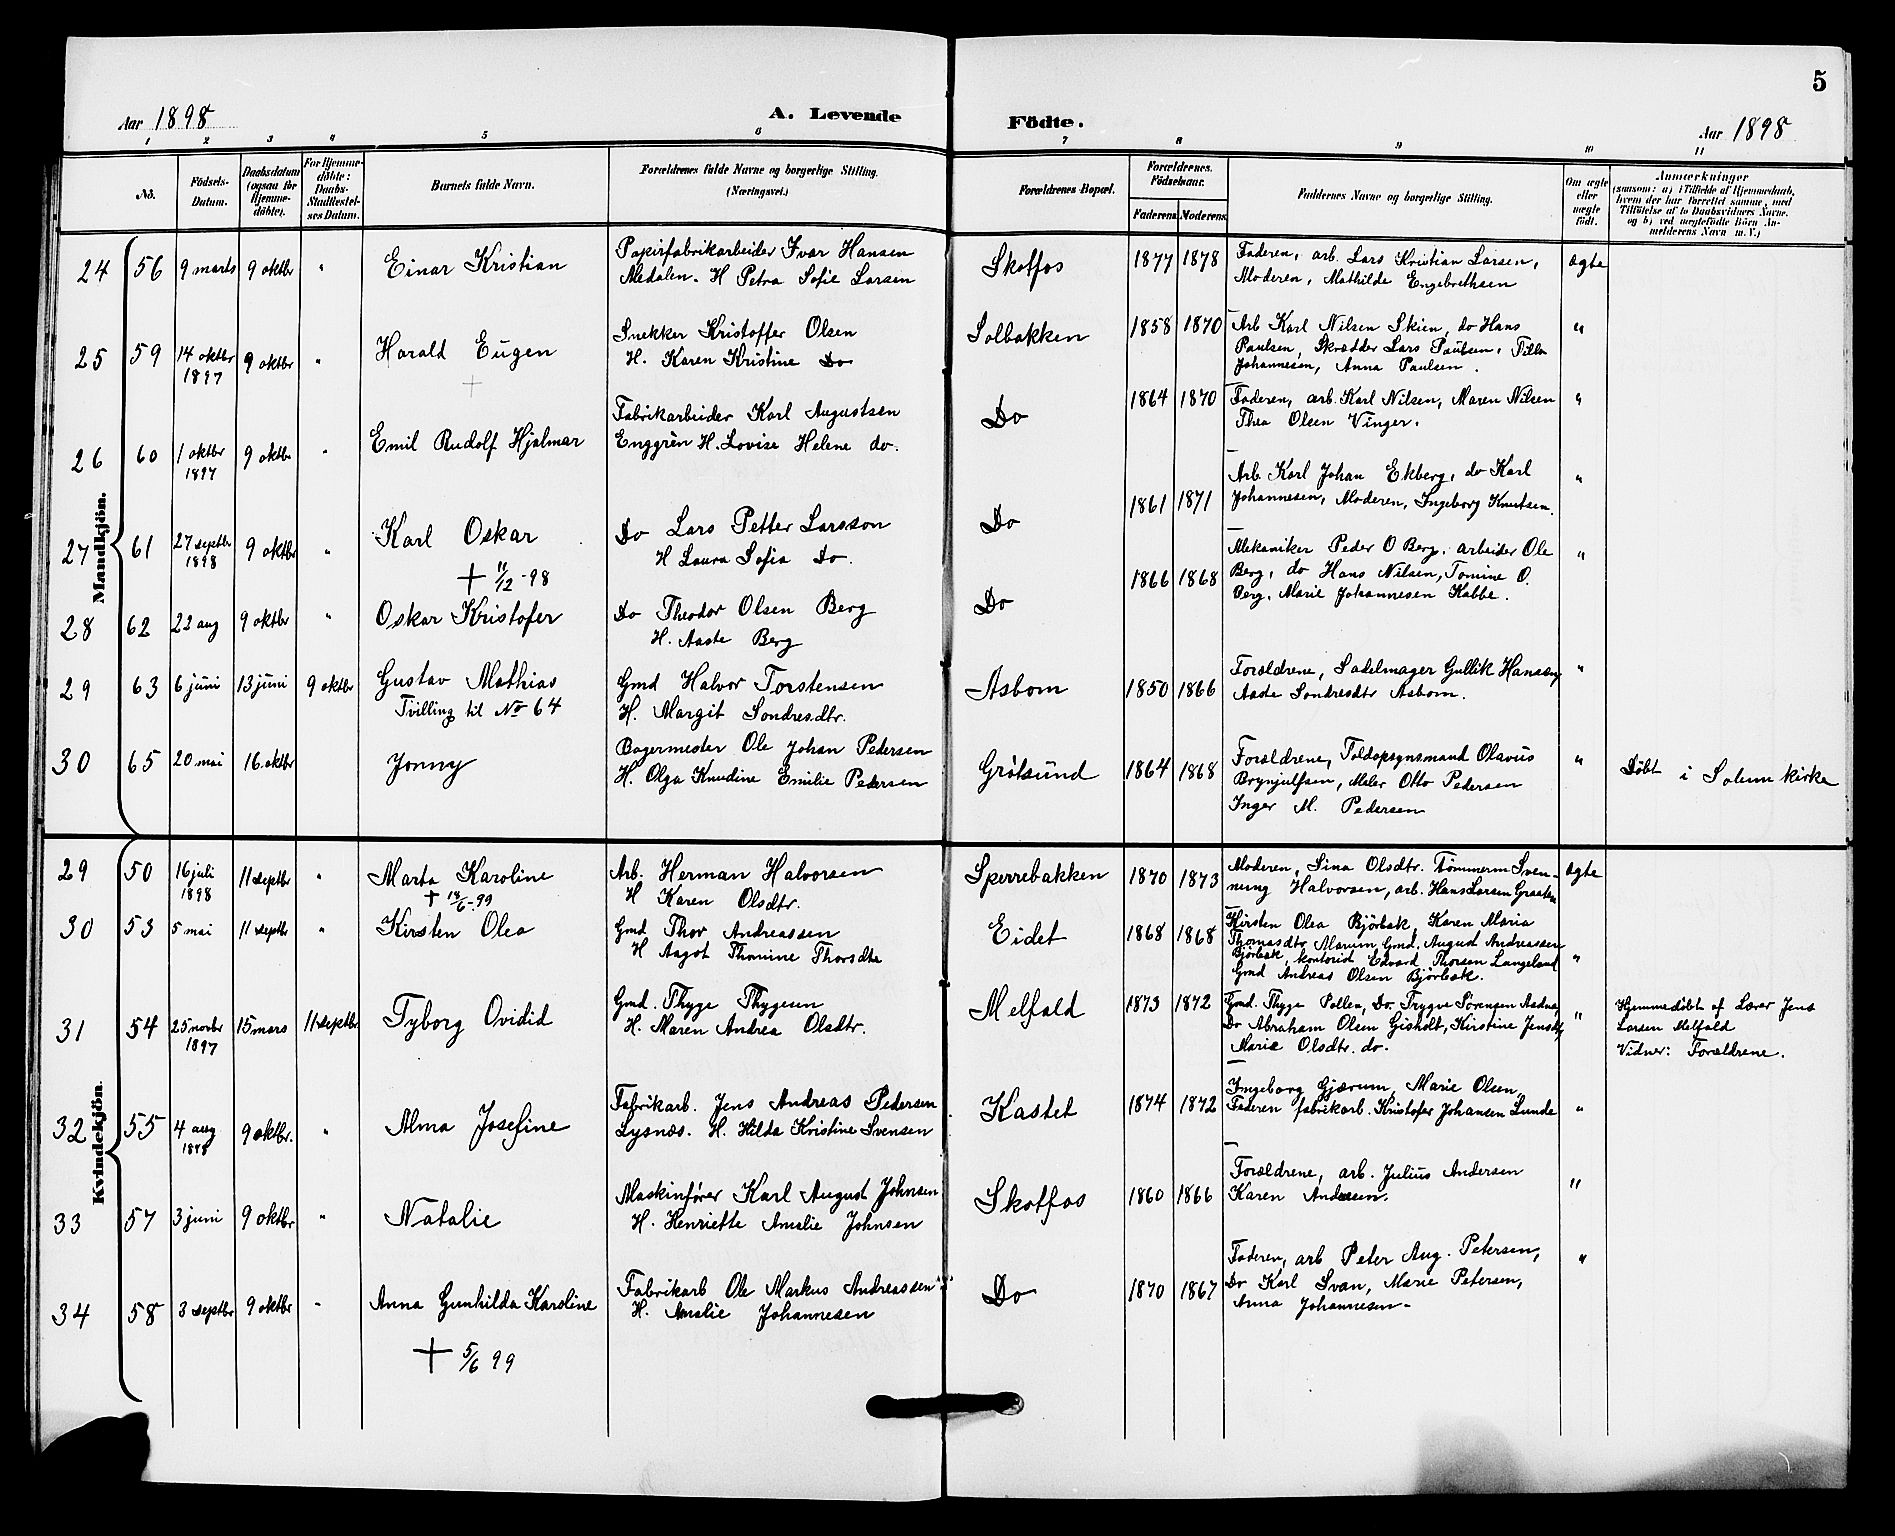 5
Aar 1898
A. Levende
Födte.
Aar 1898
1 2 3 4 5 6 7 8 9 10 11
No.
Födsels-Datum.
Daabsdatum (ogsaa for Hjemme-döbte).
For Hjemme-döbte: Daabs-Stadfæstel-ses Datum.
Barnets fulde Navn.
Forældrenes fulde Navne og borgerlige Stilling. (Næringsvei.)
Forældrenes Bopæl.
Forældrenes Födselsaar.
Faderens Moderens
Faddernes Navne og borgerlige Stilling.
Om ægte eller uægte født.
Anmærkninger
(saasom: a) i Tilfælde af Hjemmedaab, hvem der har forrettet samme, med Tilføielse af to Daabsvidners Navne. og b) ved uægtefødte Börn An-melderens Navn m. V.)
Mandkjön.
24 56 9 marts 9 oktbr " Einar Kristian
Papirfabrikarbeider Ivar Hansen
Medalen. H Petra Sofie Larsen
Skotfos 1877 1878
Faderen, arb. Lars Kristian Larsen,
Moderen, Mathilde Engebrethsen
ægte
25 59 14 oktbr 1897 9 oktbr " Harald Eugen
Snekker Kristoffer Olsen
H. Karen Kristine Do
Solbakken 1858 1870
Arb Karl Nilsen Skien, do Hans
Paulsen, Skrædder Lars Paulsen,
Johannesen, Anna Paulsen.
"
26 60 1 oktbr 1897 9 oktbr " Emil Rudolf Hjalmar
Fabrikarbeider Karl Augustsen
Enggrèn H. Lovise Helene do.
Do 1864 1870
Faderen, arb. Karl Nilsen, Maren Nilsen
Thea Olsen Vinger.
"
27 61 27 septbr 1898 9 oktbr " Karl Oskar
+ 11/12-98
Do Lars Petter Larsson
H Laura Sofia Do.
Do 1861 1871
Arb Karl Johan Ekberg, do Karl
Johannesen, Moderen, Ingeborg Knutsen.
"
28 62 22 aug 9 oktbr " Oskar Kristofer
Do Theodor Olsen Berg
H. Aaste Berg
Do 1866 1868
Mekaniker Peder O Berg, arbeider Ole
Berg, do Hans Nilsen, Tomine O.
Berg, Marie Johannesen Kabbe.
"
29 63 6 juni 13 juni 9 oktbr Gustav Mathias
Tvilling til No 64
Gmd Halvor Torstensen
H. Margit Sondresdtr.
Åsbom 1850 1866
Forældrene, Sadelmager Gullik Hansen,
Aase Sondresdtr Asbom.
"
30 65 20 mai 16. oktbr Jonny
Bagermester Ole Johan Pedersen
H. Olga Knudine Emilie Pedersen
Grötsund 1864 1868
Forældrene, Toldopsynsmand Olavus
Brynjulfsen, Maler Otto Pedersen
Inger M. Pedersen
"
Döbt i Solum kirke
Kvindekjön.
29 50 16 juli 1898 11 septbr " Marta Karoline
+ 14/6-99
Arb. Herman Halvorsen
H Karen Olsdtr.
Sperrebakken 1870 1873
Moderen, Sina Olsdtr. Tömmerm Sven-
nung Halvorsen, arb. Hans Larsen Graaten
ægte
30 53 5 mai 11 septbr " Kirsten Olea
Gmd Thor Andreassen
H Aagot Thomine Thorsdtr
Eidet 1868 1868
Kirsten Olea Björbæk, Karen Maria
Thomasdtr Marum, Gmd. August Andreassen
Björbæk, kontorist Edvard Thorsen Langeland
Gmd Andreas Olsen Björbæk.
"
31 54 25 novbr 1897 15 mars 11 septbr Tyborg Ovidid
Gmd. Thyge Thygesen
H. Maren Andrea Olsdtr.
Melfald 1873 1872
Gmd. Thyge Pollen, Do. Trygve Sörensen Aadnes,
Do Abraham Olsen Gisholt, Kirstine Jensdtr,
Marie Olsdtr. do.
"
Hjemmedöbt af Lærer Jens
Larsen Melfald
Vidner: Forældrene.
32 55 4 aug 1898 9 oktbr. " Alma Josefine
Fabrikarb. Jens Andreas Pedersen
Lysnæs. H. Hilda Kristine Svensen
Kastet 1874 1872
Ingeborg Gjærum, Marie Olsen,
Faderen fabrikarb. Kristofer Johansen Lunde
"
33 57 3 juni 9 oktbr " Natalie
Maskinförer Karl August Johnsen
H. Henriette Amalie Johnsen
Skotfos 1860 1866
Forældrene, arb. Julius Andersen
Karen Andersen.
"
34 58 3 septbr 9 oktbr " Anna Gunhilda Karoline
+ 5/6 99
Fabrikarb Ole Markus Andreassen
H. Amalie Johannesen
Do 1870 1867
Faderen, arb Peter Aug. Petersen,
Do Karl Svan, Marie Petersen,
Anna Johannesen-
"